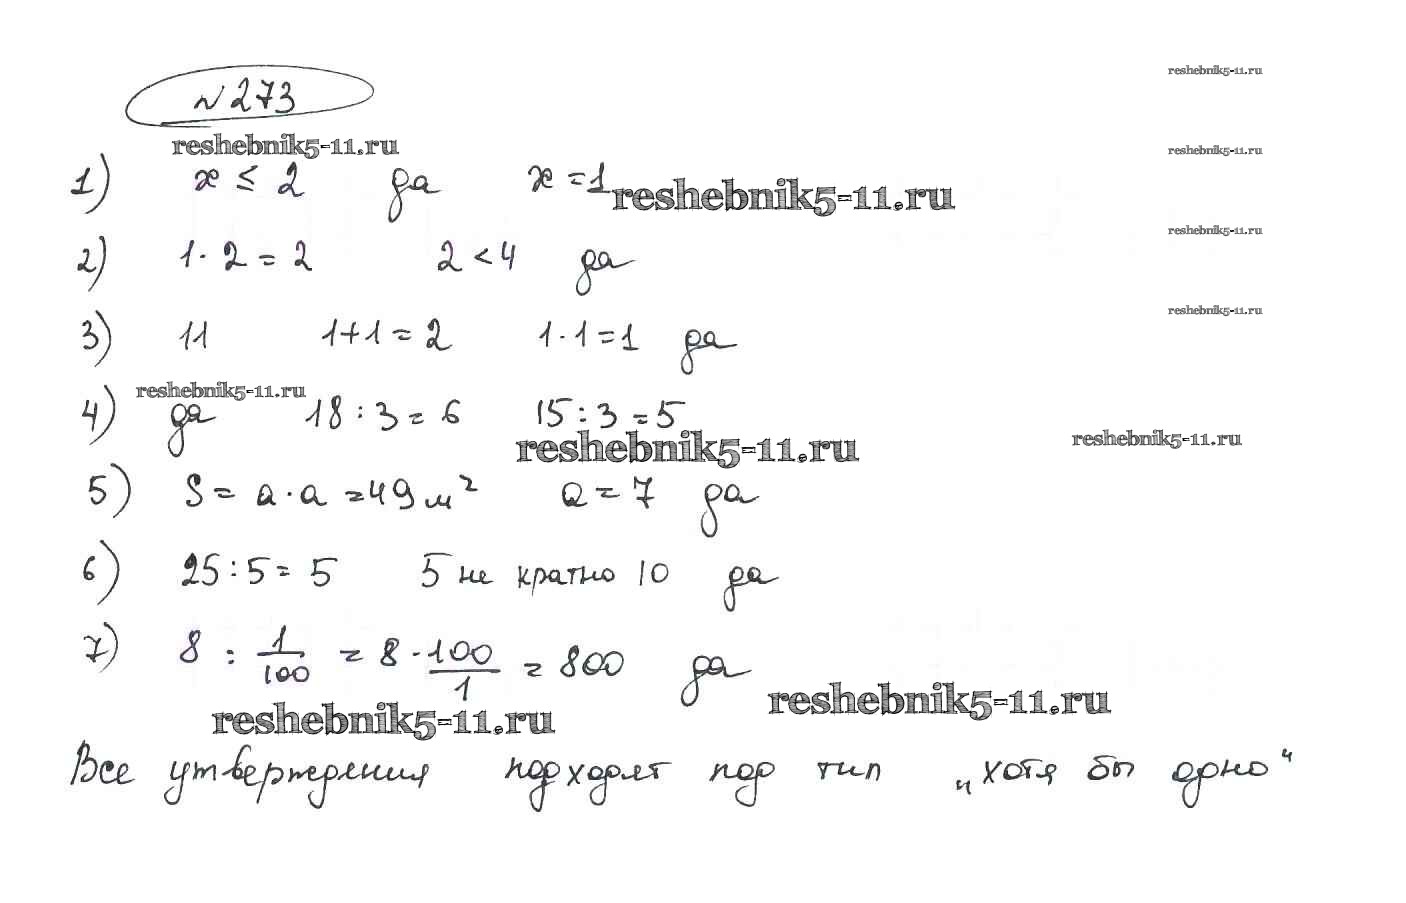 №273
reshebnik5-11.ru
reshebnik5-11.ru
reshebnik5-11.ru
1) x ≤ 2 да x = 1
reshebnik5-11.ru
reshebnik5-11.ru
2) 1 · 2 = 2 2 < 4 да
reshebnik5-11.ru
3) 11 1+1 = 2 1 · 1 = 1 да
reshebnik5-11.ru
4) да 18 : 3 = 6 15 : 3 = 5
reshebnik5-11.ru
reshebnik5-11.ru
5) S = a · a = 49 м² a = 7 да
6) 25 : 5 = 5 5 не кратно 10 да
7) 8 : 1/100 = 8 · 100/1 = 800 да
reshebnik5-11.ru
reshebnik5-11.ru
Все утверждения подходят под тип „хотя бы одно"